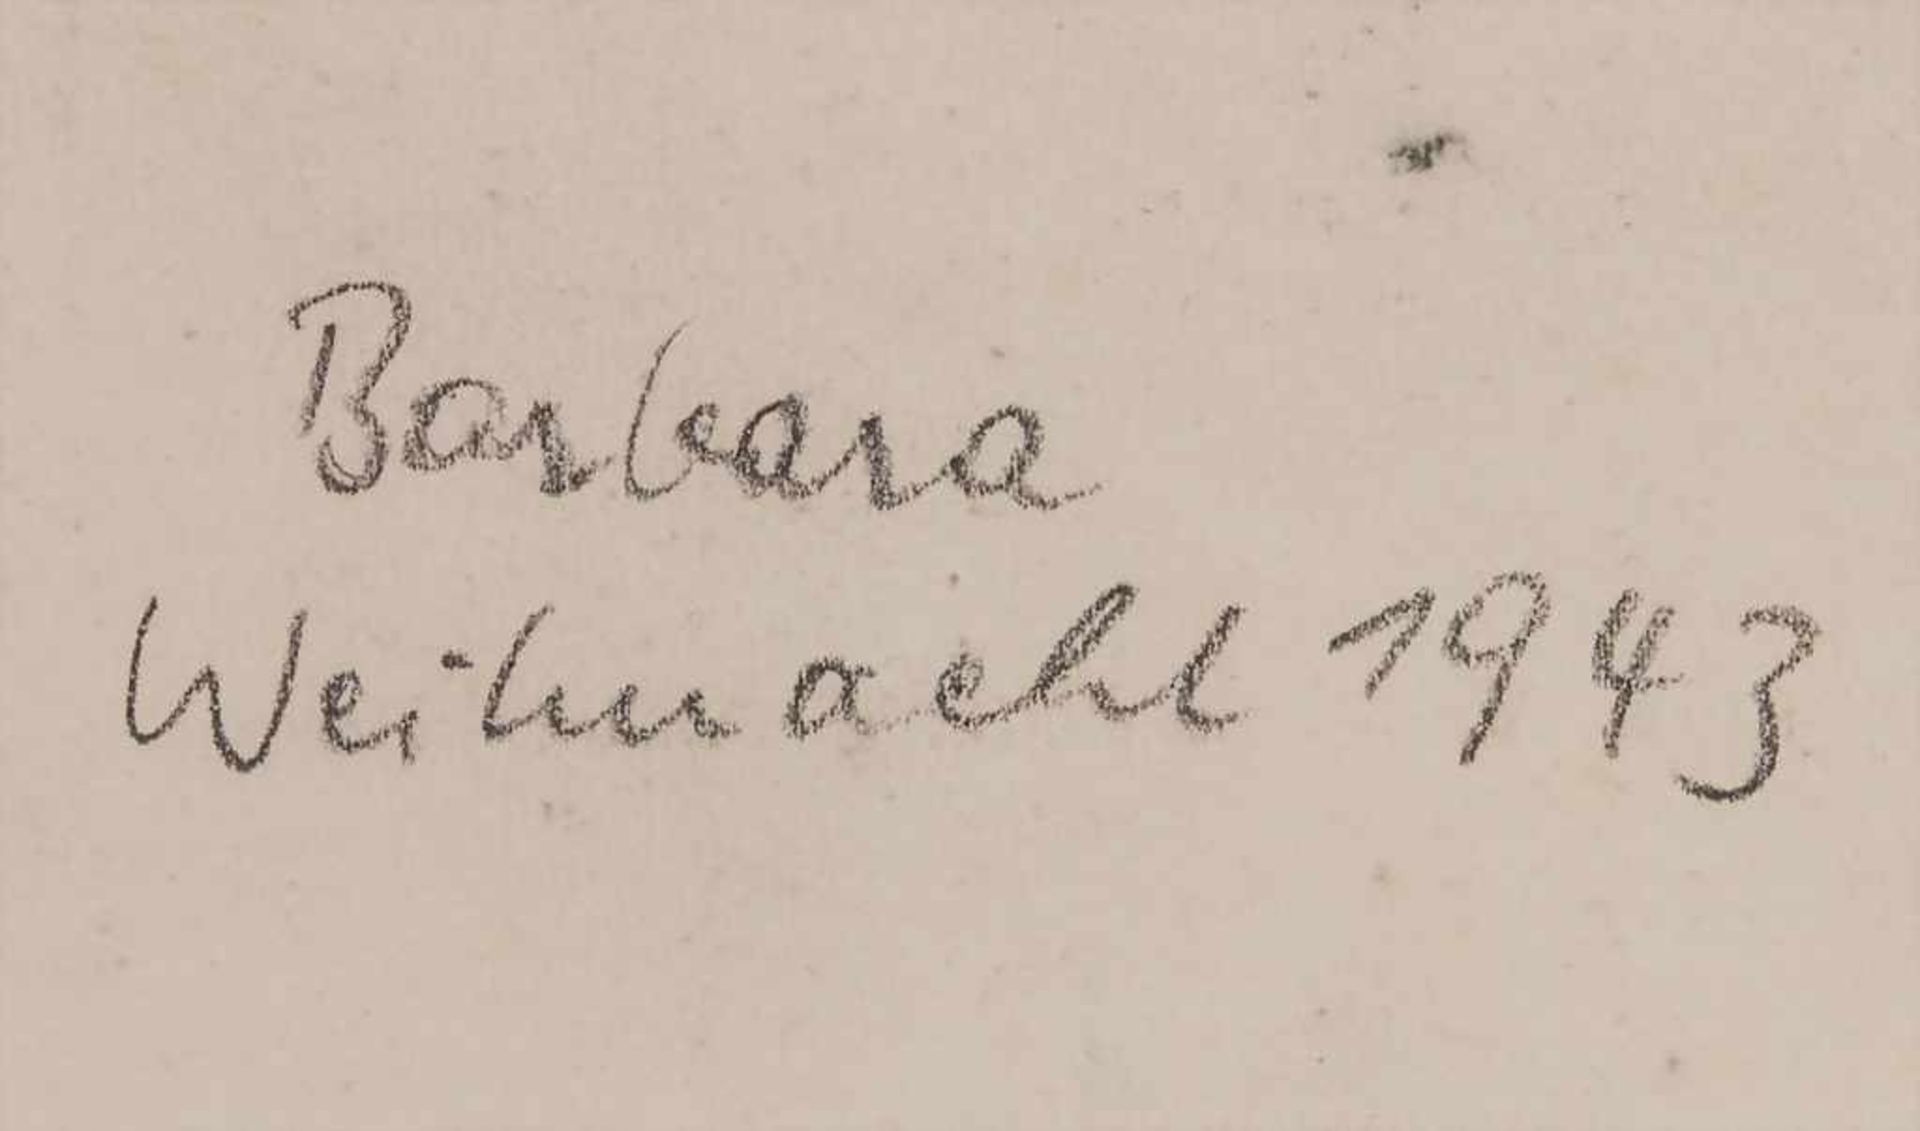 Barbara
Weihnacht 1943